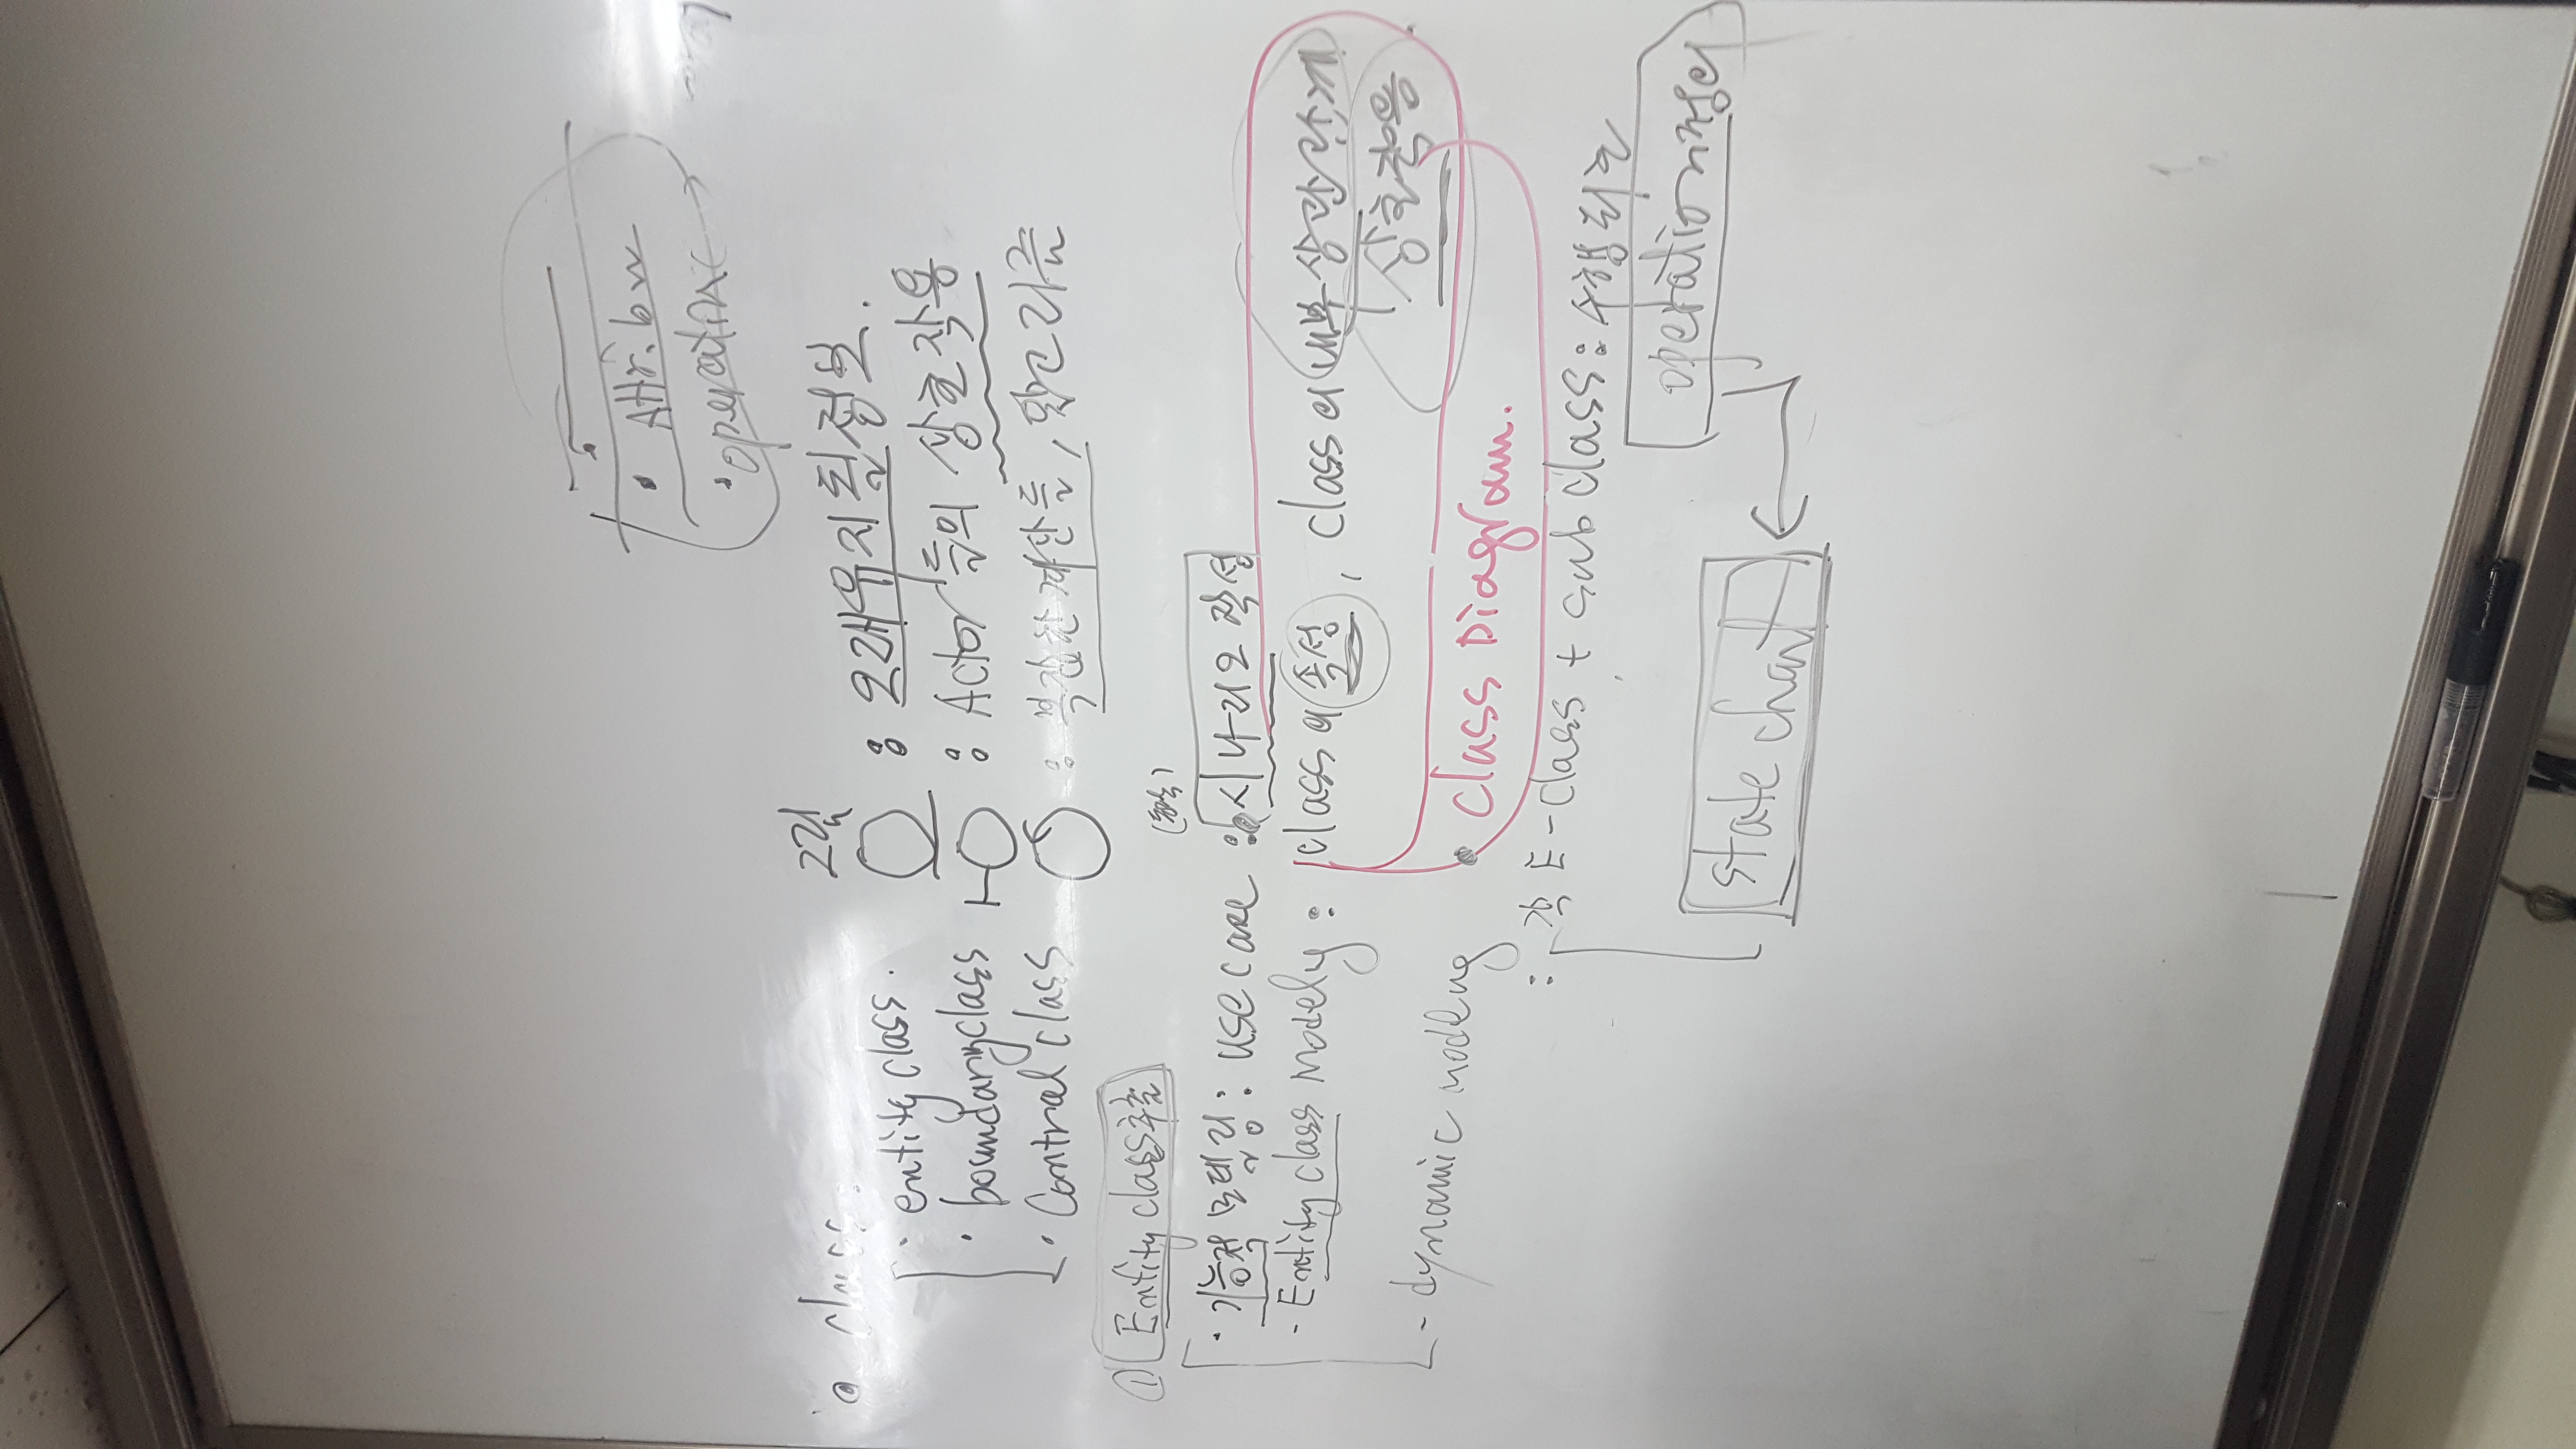 operation
◎ class :
그림
· entity class . : 오래유지될정보.
· boundary class : Actor들의 상호작용
· Control class : 복잡한계산들, 알고리즘
① Entity class추출
· 기능적 모델링 : use case : 시나리오 작성
- Entity class modely : class의 속성 , class의 내부상관관계
상호작용
- dynamic
• Class Diagram.
: 각 E-class + sub class : 수행되는
operation정의
state chart